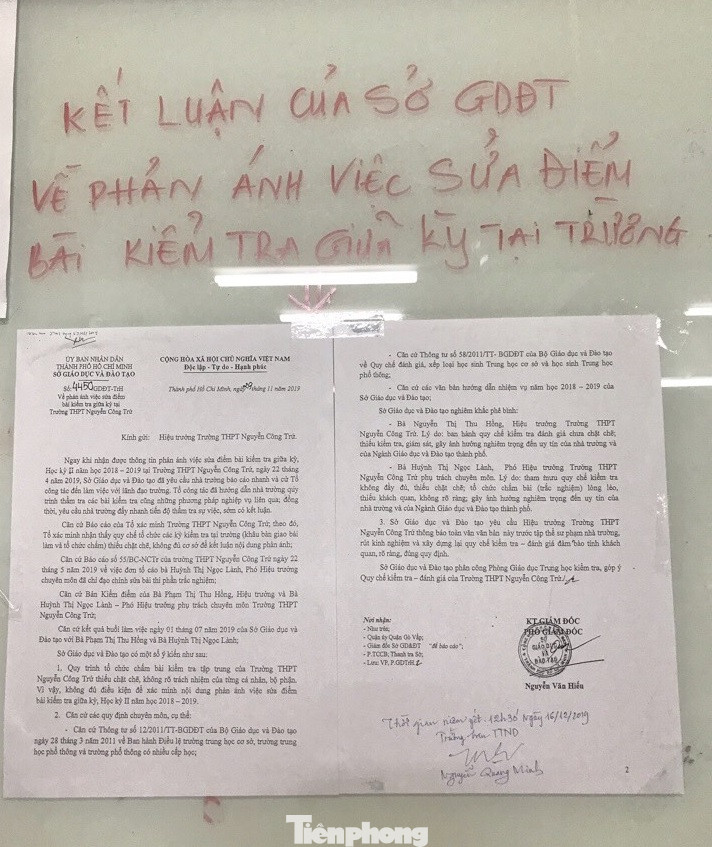 KẾT LUẬN CỦA SỞ GDĐT
VỀ PHẢN ÁNH VIỆC SỬA ĐIỂM
BÀI KIỂM TRA GIỮA KỲ TẠI TRƯỜNG
ỦY BAN NHÂN DÂN
THÀNH PHỐ HỒ CHÍ MINH
SỞ GIÁO DỤC VÀ ĐÀO TẠO
Số: 4450/GDĐT-TrH
Về phản ánh việc sửa điểm
bài kiểm tra giữa kỳ tại
Trường THPT Nguyễn Công Trứ
CỘNG HÒA XÃ HỘI CHỦ NGHĨA VIỆT NAM
Độc lập - Tự do - Hạnh phúc
Thành phố Hồ Chí Minh, ngày tháng 11 năm 2019
Kính gửi: Hiệu trưởng Trường THPT Nguyễn Công Trứ.
Ngay khi nhận được thông tin phản ánh việc sửa điểm bài kiểm tra giữa kỳ,
Học kỳ II năm học 2018 – 2019 tại Trường THPT Nguyễn Công Trứ, ngày 22 tháng
4 năm 2019, Sở Giáo dục và Đào tạo đã yêu cầu nhà trường báo cáo nhanh và cử Tổ
công tác đến làm việc với lãnh đạo trường. Tổ công tác đã hướng dẫn nhà trường quy
trình thẩm tra các bài kiểm tra cũng những phương pháp nghiệp vụ liên qua; đồng
thời, yêu cầu nhà trường đẩy nhanh tiến độ thẩm tra sự việc, sớm có kết luận.
Căn cứ Báo cáo của Tổ xác minh Trường THPT Nguyễn Công Trứ; theo đó,
Tổ xác minh nhận thấy quy chế tổ chức các kỳ kiểm tra tại trường (khâu bàn giao bài
làm và tổ chức chấm) thiếu chặt chẽ, không đủ cơ sở để kết luận nội dung phản ánh;
Căn cứ Báo cáo số 55/BC-NCTr của trường THPT Nguyễn Công Trứ ngày 22
tháng 5 năm 2019 về việc đơn tố cáo bà Huỳnh Thị Ngọc Lành, Phó Hiệu trưởng
chuyên môn đã chỉ đạo chỉnh sửa bài thi phần trắc nghiệm;
Căn cứ Bản Kiểm điểm của Bà Phạm Thị Thu Hồng, Hiệu trưởng và Bà
Huỳnh Thị Ngọc Lành – Phó Hiệu trưởng phụ trách chuyên môn Trường THPT
Nguyễn Công Trứ;
Căn cứ kết quả buổi làm việc ngày 01 tháng 07 năm 2019 của Sở Giáo dục và
Đào tạo với Bà Phạm Thị Thu Hồng và Bà Huỳnh Thị Ngọc Lành;
Sở Giáo dục và Đào tạo có một số ý kiến như sau:
1. Quy trình tổ chức chấm bài kiểm tra tập trung của Trường THPT
Nguyễn Công Trứ thiếu chặt chẽ, không rõ trách nhiệm của từng cá nhân, bộ phận.
Vì vậy, không đủ điều kiện để xác minh nội dung phản ánh việc sửa điểm
bài kiểm tra giữa kỳ, Học kỳ II năm học 2018 – 2019.
2. Căn cứ các quy định chuyên môn, cụ thể:
- Căn cứ Thông tư số 12/2011/TT-BGDĐT của Bộ Giáo dục và Đào tạo
ngày 28 tháng 3 năm 2011 về Ban hành Điều lệ trường trung học cơ sở, trường trung
học phổ thông và trường phổ thông có nhiều cấp học;
- Căn cứ Thông tư số 58/2011/TT- BGDĐT của Bộ Giáo dục và Đào tạo
về Quy chế đánh giá, xếp loại học sinh Trung học cơ sở và học sinh Trung học
phổ thông;
- Căn cứ các văn bản hướng dẫn nhiệm vụ năm học 2018 – 2019 của
Sở Giáo dục và Đào tạo;
Sở Giáo dục và Đào tạo nghiêm khắc phê bình:
- Bà Nguyễn Thị Thu Hồng, Hiệu trưởng Trường THPT
Nguyễn Công Trứ. Lý do: ban hành quy chế kiểm tra đánh giá chưa chặt chẽ;
thiếu kiểm tra, giám sát, gây ảnh hưởng nghiêm trọng đến uy tín của nhà trường và
của Ngành Giáo dục và Đào tạo thành phố.
- Bà Huỳnh Thị Ngọc Lành, Phó Hiệu trưởng Trường THPT
Nguyễn Công Trứ phụ trách chuyên môn. Lý do: tham mưu quy chế kiểm tra
không đầy đủ, thiếu chặt chẽ; tổ chức chấm bài (trắc nghiệm) lỏng lẻo,
thiếu khách quan, không rõ ràng; gây ảnh hưởng nghiêm trọng đến uy tín của
nhà trường và của Ngành Giáo dục và Đào tạo thành phố.
3. Sở Giáo dục và Đào tạo yêu cầu Hiệu trưởng Trường THPT
Nguyễn Công Trứ thông báo toàn văn văn bản này trước tập thể sư phạm nhà trường,
rút kinh nghiệm và xây dựng lại quy chế kiểm tra – đánh giá đảm bảo tính khách
quan, rõ ràng, đúng quy định.
Sở Giáo dục và Đào tạo phân công Phòng Giáo dục Trung học kiểm tra, góp ý
Quy chế kiểm tra – đánh giá của Trường THPT Nguyễn Công Trứ./.
Nơi nhận:
- Như trên;
- Quận ủy Quận Gò Vấp;
- Giám đốc Sở GD&ĐT "để báo cáo";
- P.TCCB, Thanh tra Sở;
- Lưu: VP, P.GDTrH.
KT.GIÁM ĐỐC
PHÓ GIÁM ĐỐC
SỞ
GIÁO DỤC
VÀ
ĐÀO TẠO
Nguyễn Văn Hiếu
Thời gian niêm yết: 12h30 Ngày 16/12/2019
Trưởng ban TTND
Nguyễn Quang Minh
2
Tiênphong